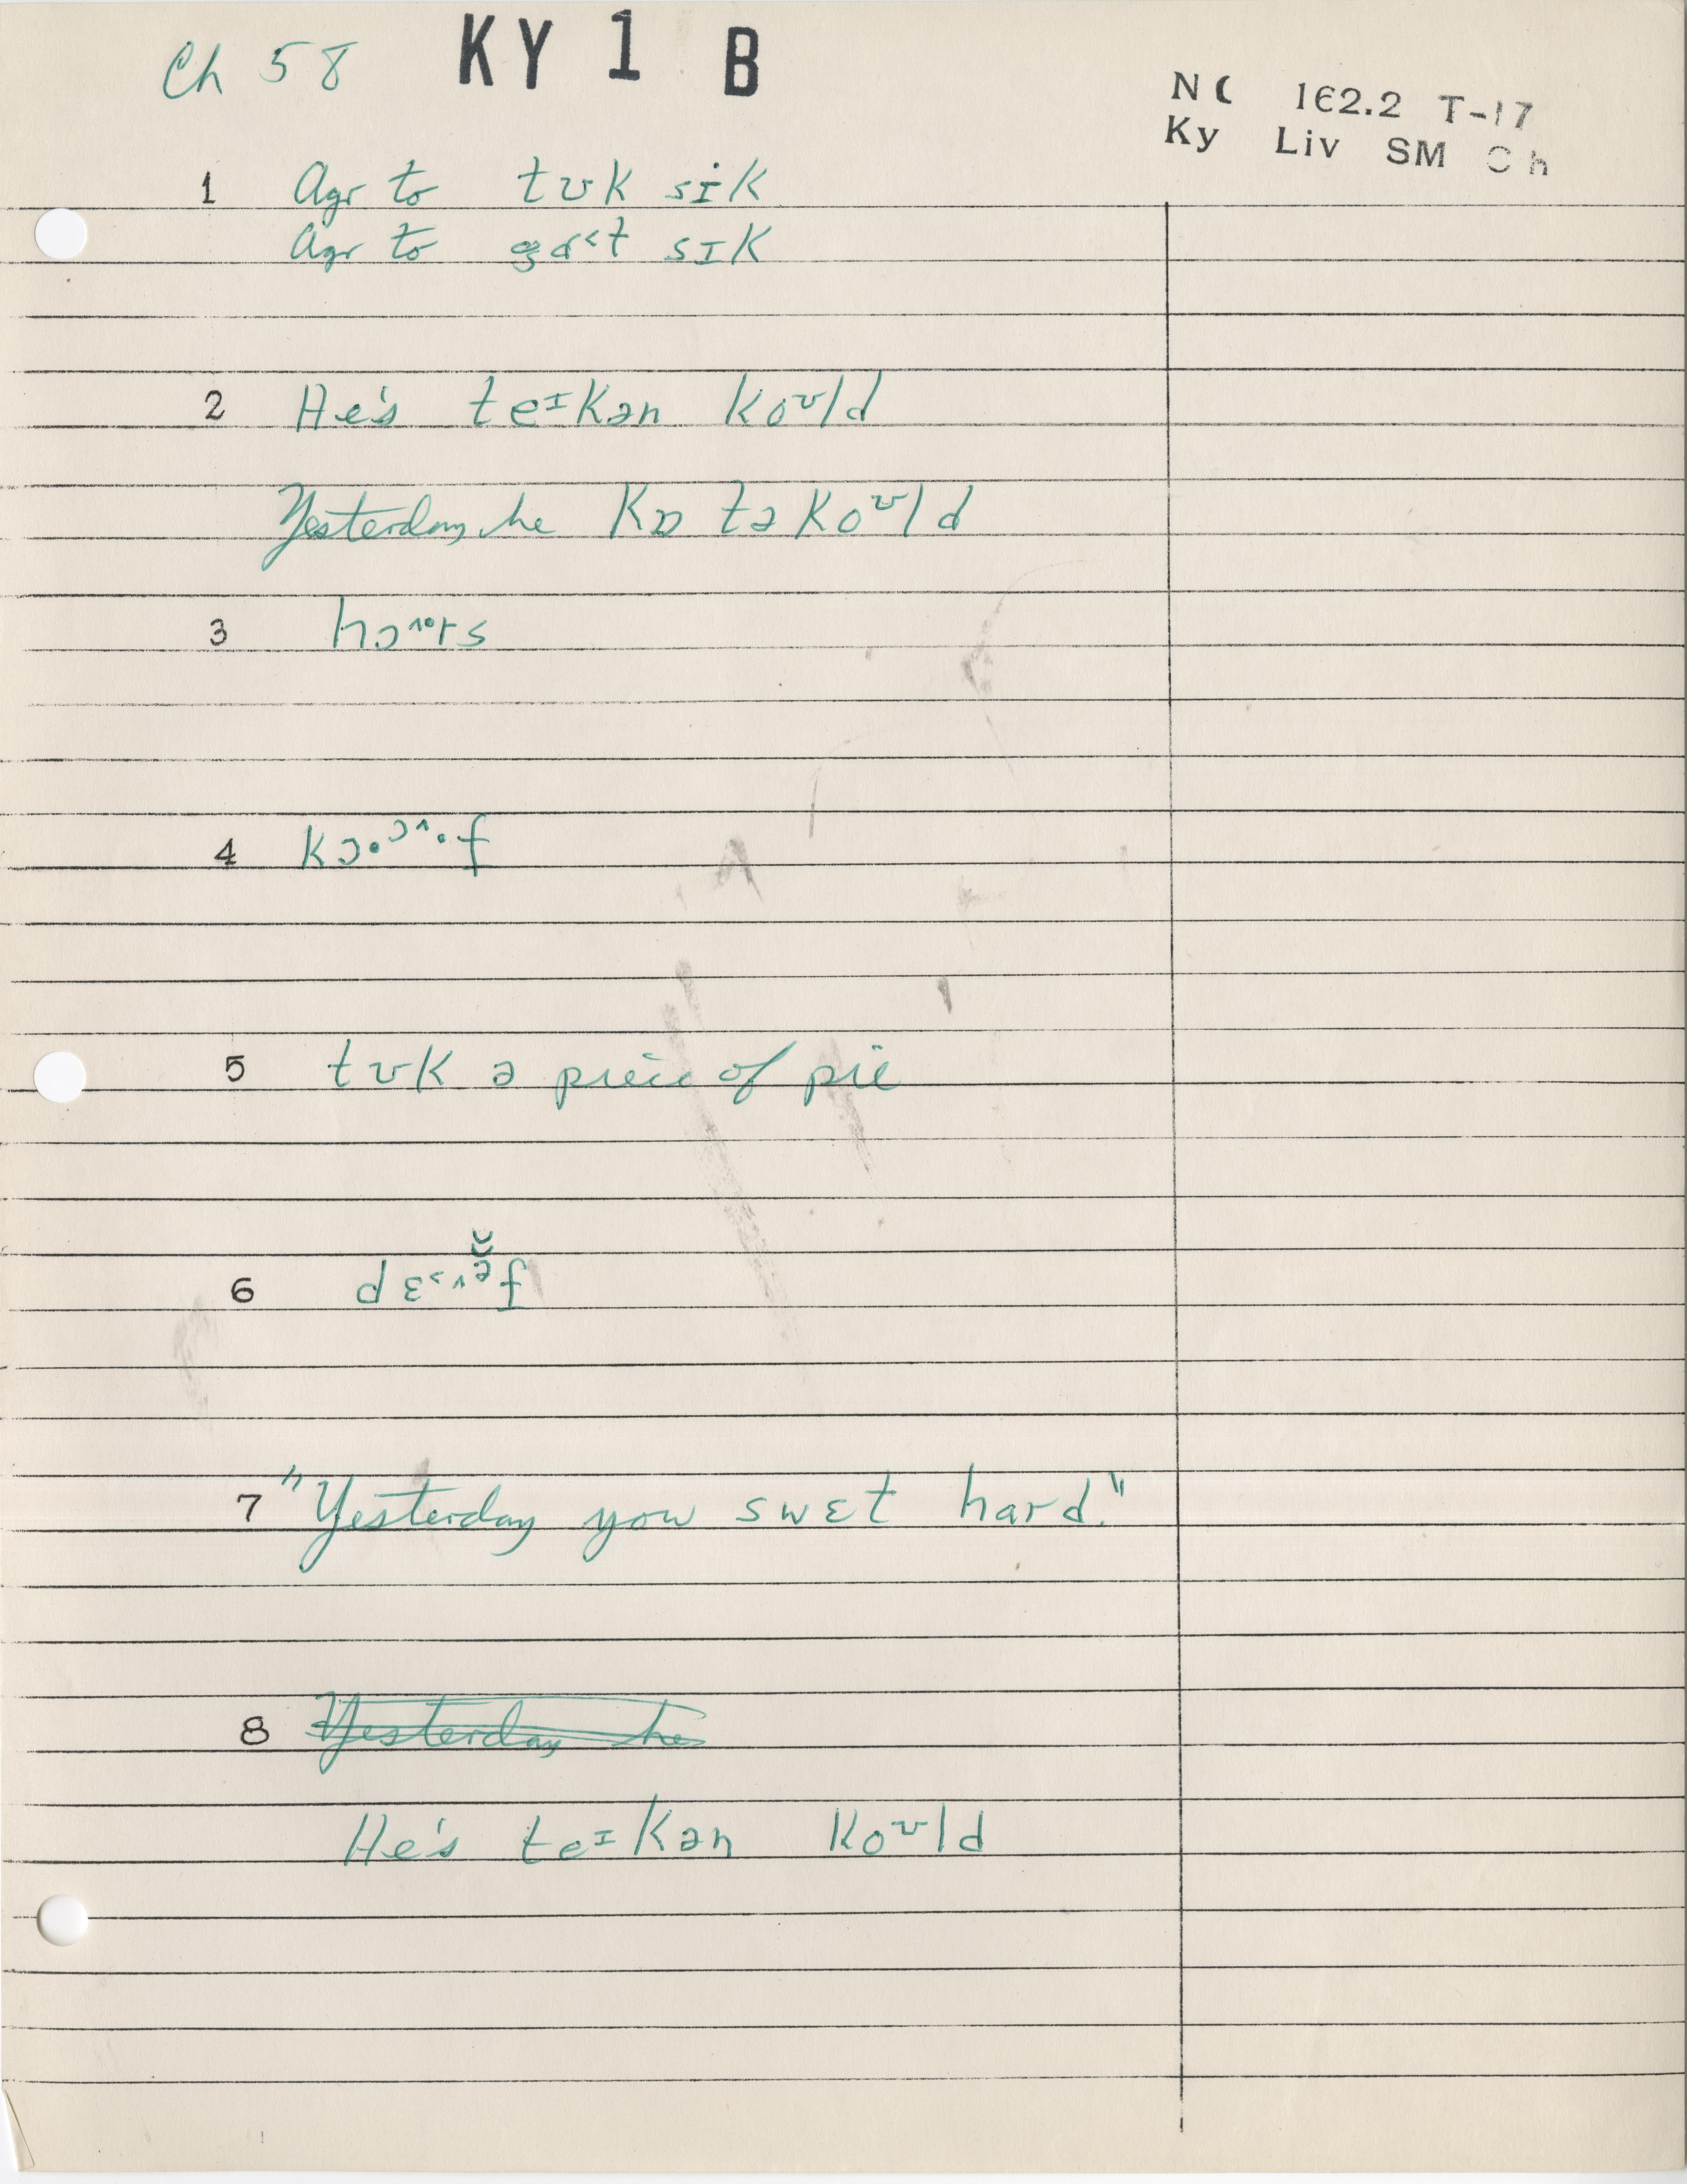 Ch 58 KY 1 B
NC 162.2 T-17
Ky Liv SM Ch
1 Agr to tʊk sɨk
Agr to gɑ˂t sɪk
2 He's teᶦkən koᶷld
Yesterday he kɒ tə koᶷld
3 hɔ˄˞rs
4 kɔ·ᵓ˄·f
5 tʊk ə piece of pie
6 dɛ˂˅ə̯f
7 "Yesterday you swɛt hard."
8 Yesterday he
He's teᶦkən koᶷld